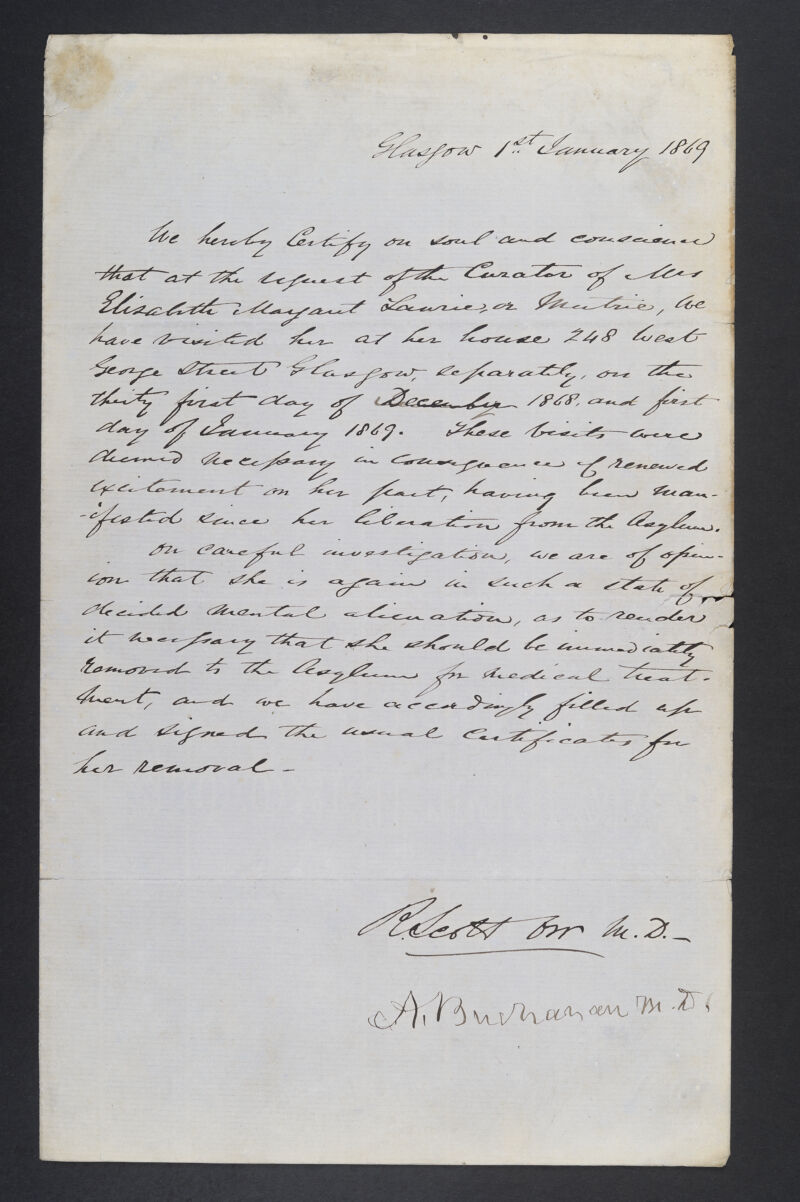 Glasgow 1st January 1869
We hereby Certify on soul and conscience
that at the request of the Curator of Mrs
Elisabeth Margaret Lawrie, or Meitrie, We
have visited her at her house 248 West
George Street Glasgow, separately, on the
thirty first day of December 1868, and first
day of January 1869. These visits were
deemed necessary in consequence of renewed
excitement on her part, having been man-
-ifested since her liberation from the Asylum.
On careful investigation, we are of opin-
ion that she is again in such a state of
decided mental alienation, as to render
it necessary that she should be immediately
removed to the Asylum for medical treat-
ment, and we have accordingly filled up
and signed the usual Certificates for
her removal -
R. Scott Orr M.D. -
A. Buchanan M.D.